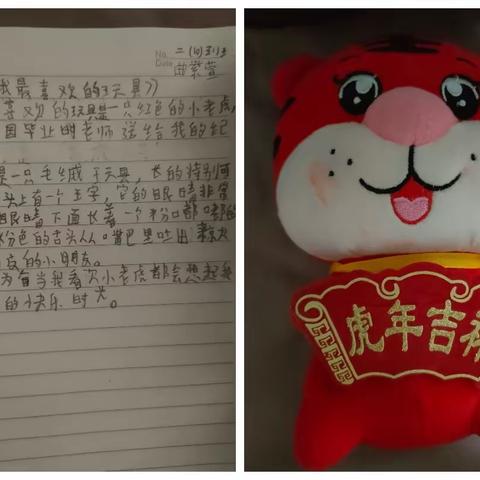 No.
Date
二(10)班
曲紫萱
我最喜欢的玩具》
喜欢的玩具是一只红色的小老虎,
园毕业时老师送给我的纪
是一只毛绒玩具,长的特别可
头上有一个王字,它的眼睛非常
眼睛下面长着一个粉嘟嘟的
粉色的舌头从嘴巴里吐出来
皮的小朋友。
为每当我看次小老虎都会想起我
的快乐时光。
虎年吉祥